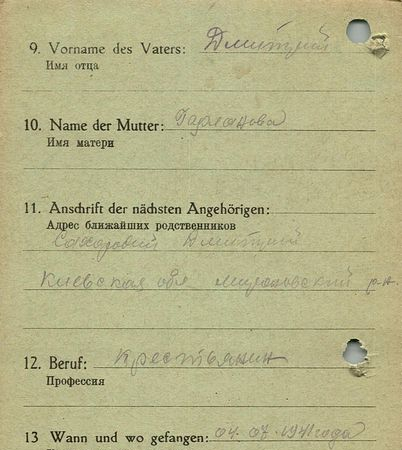 9. Vorname des Vaters: Дмитрий
Имя отца
10. Name der Mutter: Гарханова
Имя матери
11. Anschrift der nächsten Angehörigen:
Адрес ближайших родственников
Дмитрий
Киевская обл мироновский р-н.
12. Beruf: Крестьянин
Профессия
13 Wann und wo gefangen: 04.07.1941 года